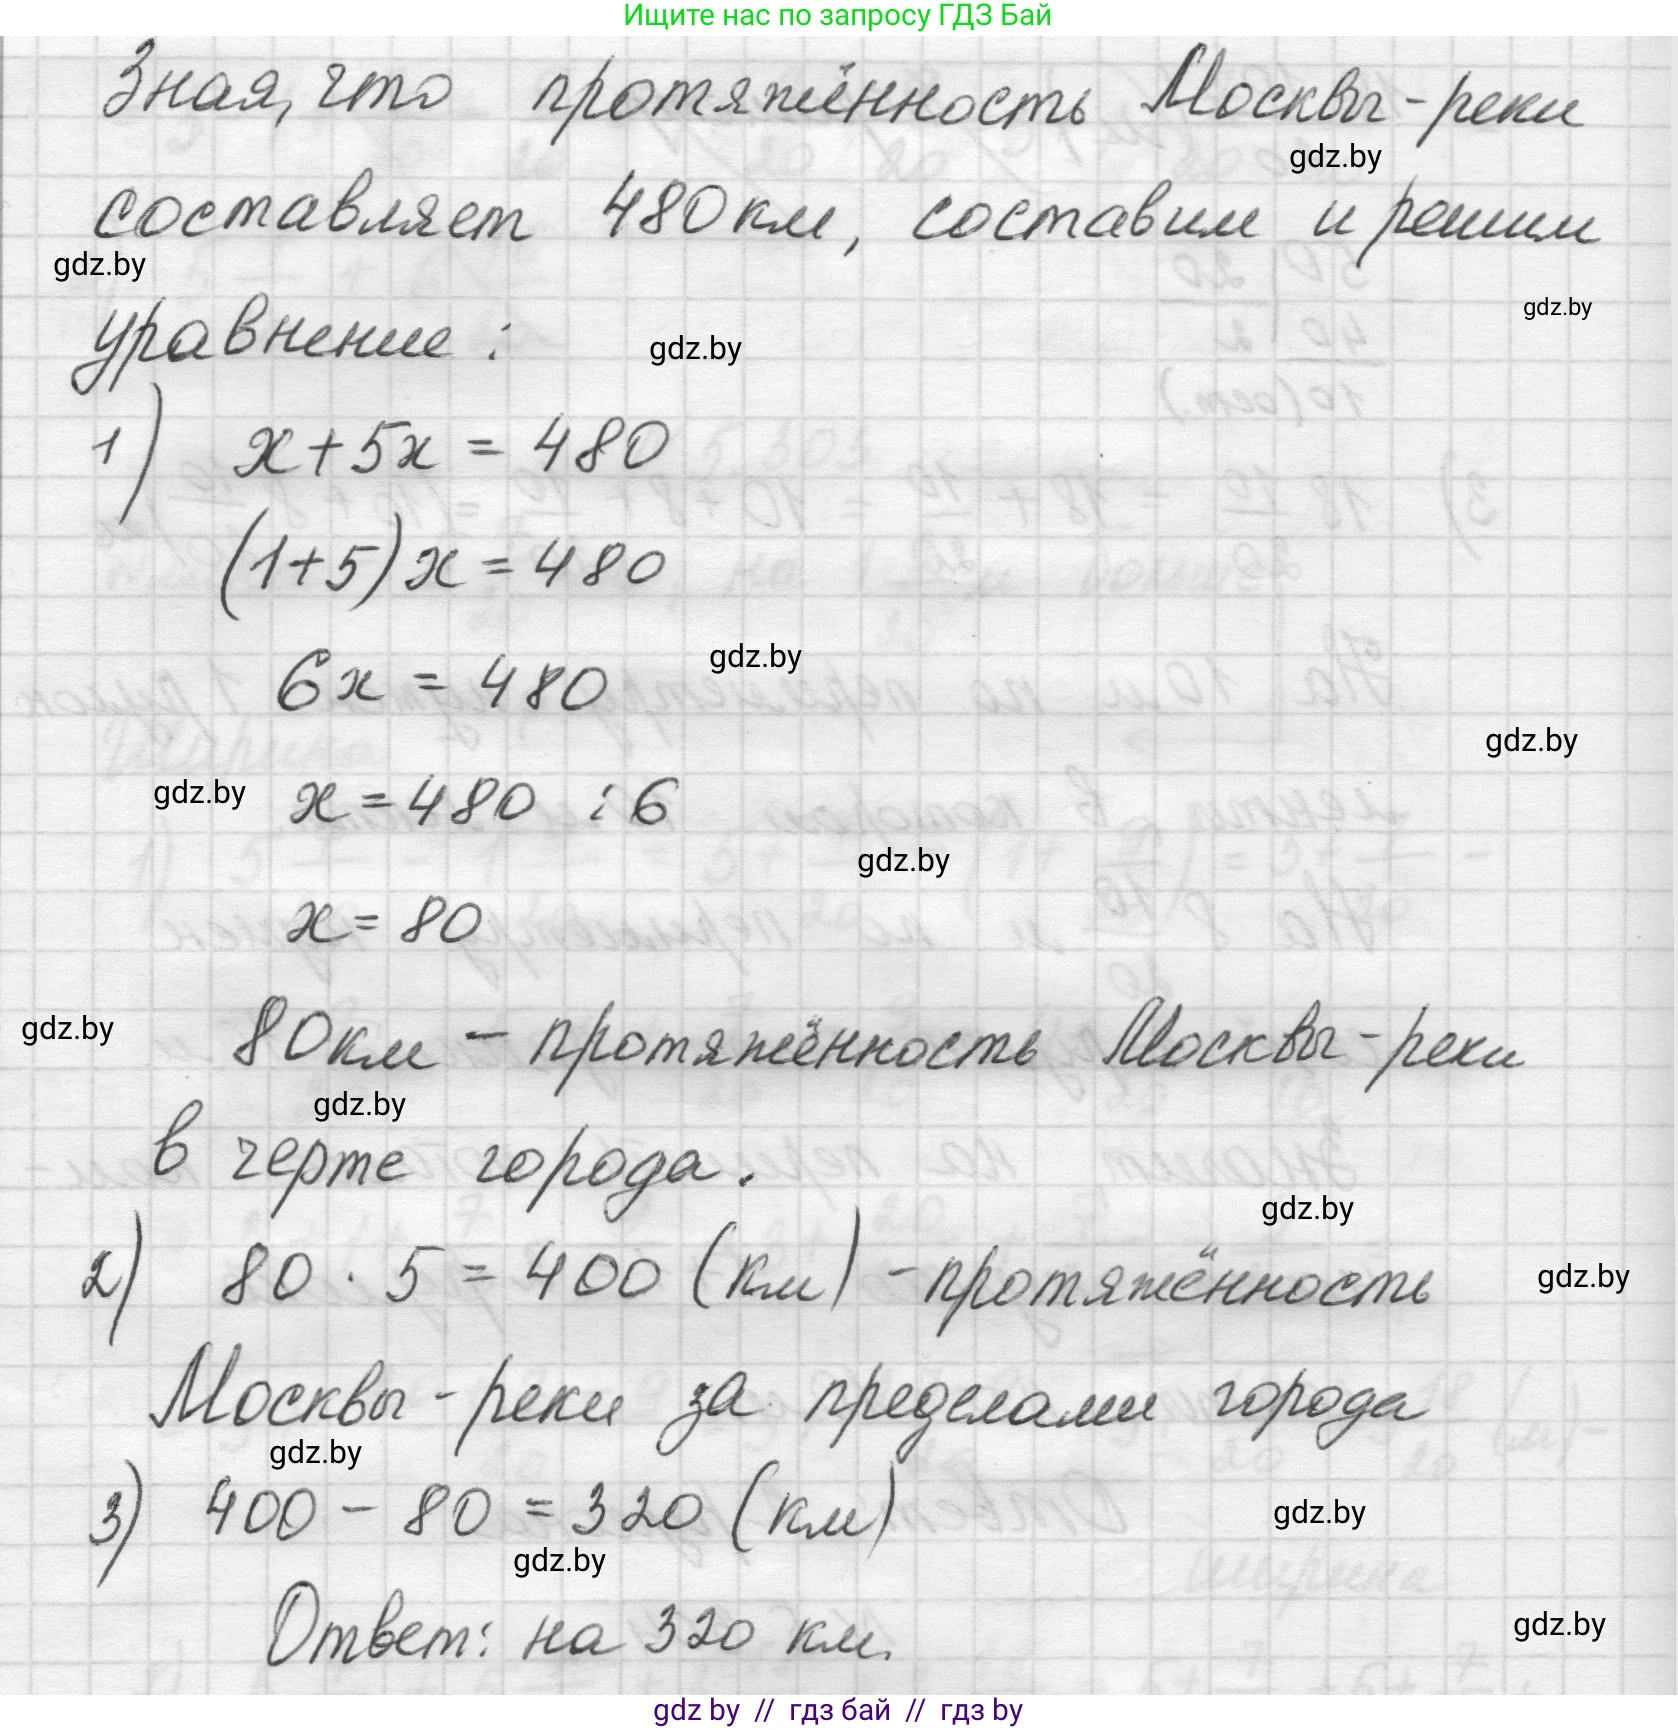 Ищите нас по запросу ГДЗ Бай
Зная, что протяжённость Москвы-реки
gdz.by
составляет 480 км, составим и решим
gdz.by
gdz.by
уравнение:
gdz.by
1) x+5x = 480
(1+5)x = 480
6x = 480
gdz.by
gdz.by
x = 480 : 6
gdz.by
gdz.by
x = 80
80 км - протяжённость Москвы-реки
gdz.by
gdz.by
в черте города.
gdz.by
2) 80 · 5 = 400 (км) - протяжённость
gdz.by
Москвы-реки за пределами города
gdz.by
3) 400 - 80 = 320 (км)
gdz.by
gdz.by
Ответ: на 320 км.
gdz.by
gdz by // гдз бай // гдз by